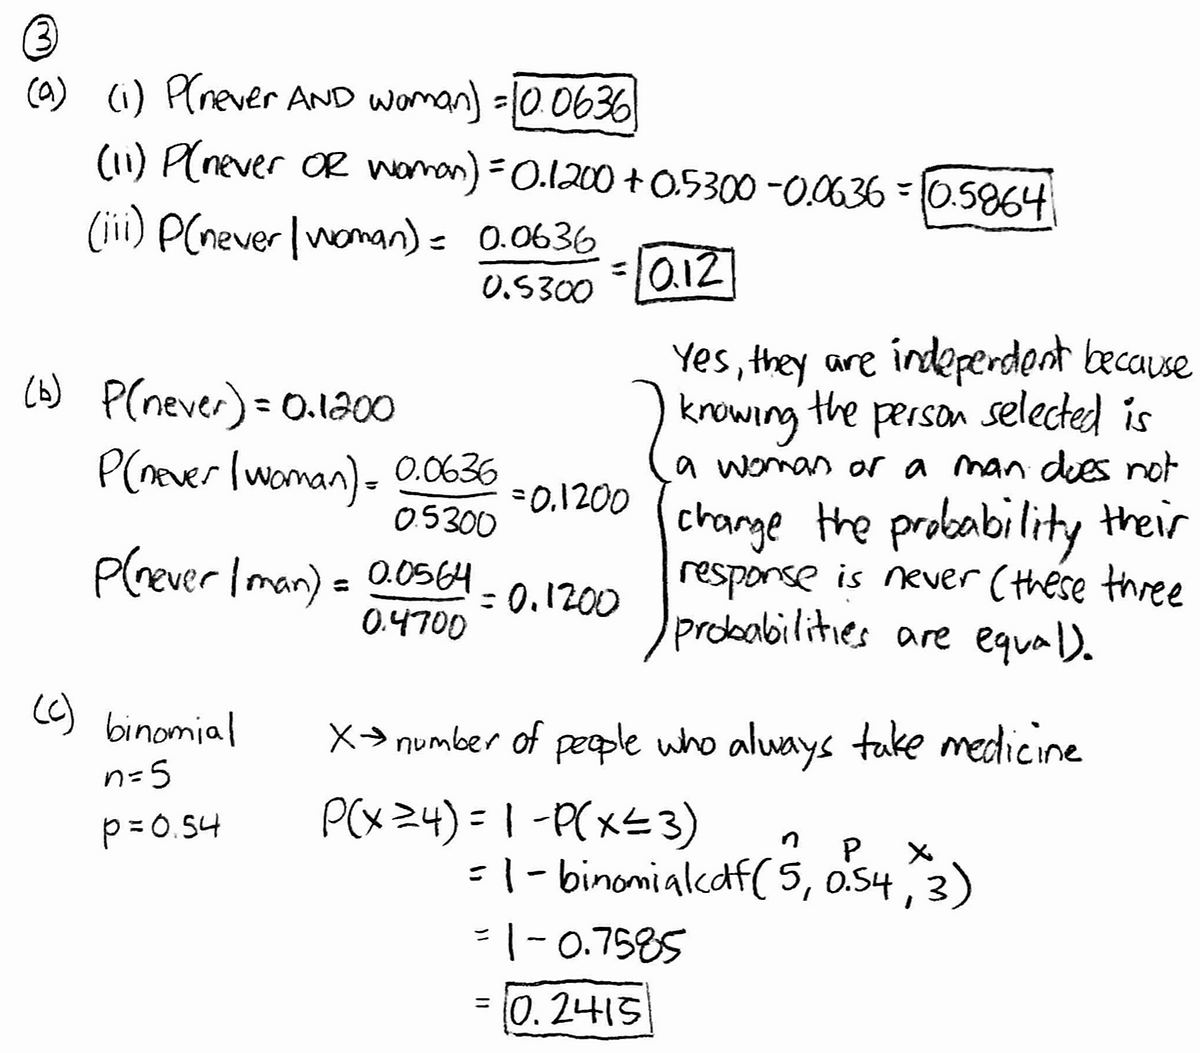 ③
(a) (i) P(never AND woman) = 0.0636
(ii) P(never OR woman) = 0.1200 + 0.5300 - 0.0636 = 0.5864
(iii) P(never | woman) = 0.0636 / 0.5300 = 0.12
(b) P(never) = 0.1200
P(never | woman) = 0.0636 / 0.5300 = 0.1200
P(never | man) = 0.0564 / 0.4700 = 0.1200
Yes, they are independent because
knowing the person selected is
a woman or a man does not
change the probability their
response is never (these three
probabilities are equal).
(c) binomial
n=5
p=0.54
X→ number of people who always take medicine
P(x≥4) = 1 - P(x≤3)
n p x
= 1 - binomialcdf(5, 0.54, 3)
= 1 - 0.7585
= 0.2415